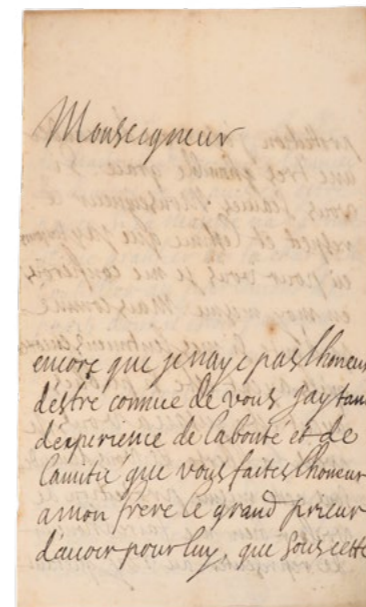 Monseigneur
encore que je naye pas lhoneur
destre connue de vous Jay tant
dexperience de labonté et de
lamitié que vous faites lhoneur
amon frere le grand prieur
dauoir pour luy, que sous cette